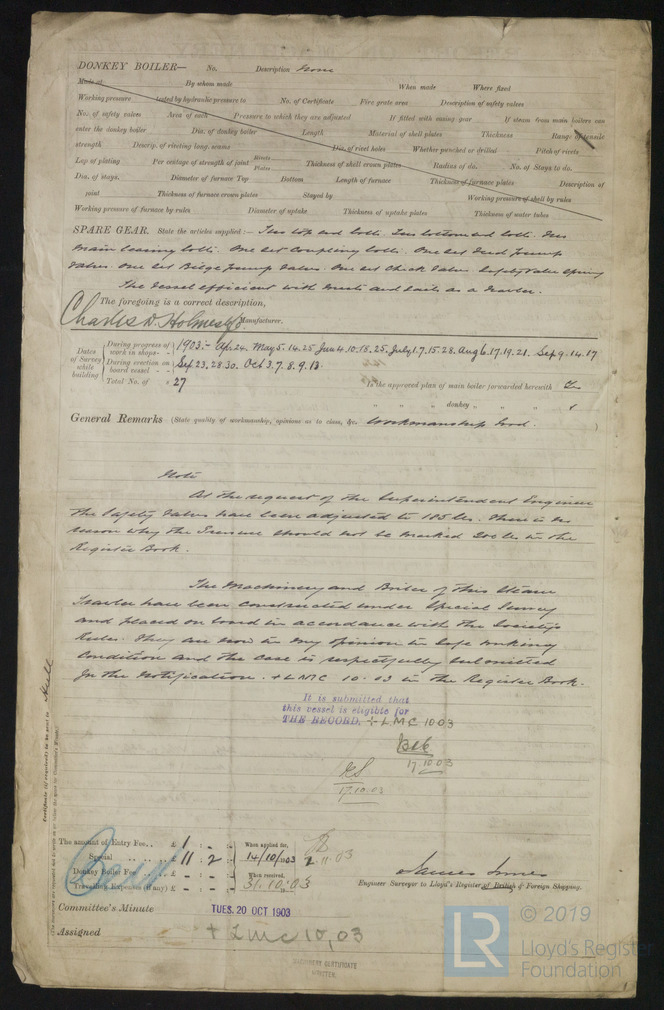 DONKEY BOILER— No. Description None
Made at By whom made When made Where fixed
Working pressure tested by hydraulic pressure to No. of Certificate Fire grate area Description of safety valves
No. of safety valves Area of each Pressure to which they are adjusted If fitted with easing gear If steam from main boilers can
enter the donkey boiler Dia. of donkey boiler Length Material of shell plates Thickness Range of tensile
strength Descrip. of riveting long. seams Dia. of rivet holes Whether punched or drilled Pitch of rivets
Lap of plating Per centage of strength of joint Rivets Plates Thickness of shell crown plates Radius of do. No. of Stays to do.
Dia. of stays. Diameter of furnace Top Bottom Length of furnace Thickness of furnace plates Description of
joint Thickness of furnace crown plates Stayed by Working pressure of shell by rules
Working pressure of furnace by rules Diameter of uptake Thickness of uptake plates Thickness of water tubes
SPARE GEAR. State the articles supplied:— Two top end bolts. Two bottom end bolts. Two
main bearing bolts. One set Coupling bolts. One set Feed pump
valves. One set Bilge pump valves. One set Check valves. Safety valve spring
The vessel efficient with masts and sails as a trawler.
The foregoing is a correct description,
Charles D. Holmes & Co Manufacturer.
Dates of Survey while building
During progress of work in shops - - 1903:- Apr 24. May 5. 14. 25 Jun 4. 10. 18. 25. July 1. 7. 15. 28. Aug 6. 17. 19. 21. Sep 9. 14. 17
During erection on board vessel - - Sep 23. 28. 30. Oct 3. 7. 8. 9. 13.
Total No. of 27
Is the approved plan of main boiler forwarded herewith Yes
" " " donkey " " "
General Remarks (State quality of workmanship, opinions as to class, &c. Workmanship Good. )
Note
At the request of the Superintendent Engineer
the Safety Valves have been adjusted to 185 lbs. There is no
reason why the Pressure should not be marked 200 lbs in the
Register Book.
The Machinery and Boiler of this Steam
Trawler have been constructed under Special Survey
and placed on board in accordance with the Society's
Rules. They are now in my opinion in safe working
Condition and the case is respectfully submitted
for the Notification. + LMC 10.03 in the Register Book.
It is submitted that
this vessel is eligible for
THE RECORD. + LMC 10 03
17.10.03
17.10.03
Certificate (if required) to be sent to Hull
The amount of Entry Fee.. £ 1 : - : - When applied for,
Special .. .. .. .. £ 11 : 2 : - 14/10/1903 2.11.03
Donkey Boiler Fee £ - : - : - When received,
Travelling Expenses (if any) £ - : - : - 31.10.03
James Innes
Engineer Surveyor to Lloyd's Register of British & Foreign Shipping.
Committee's Minute TUES. 20 OCT 1903
Assigned + LMC 10,03
MACHINERY CERTIFICATE
WRITTEN
LR © 2019
Lloyd's Register
Foundation